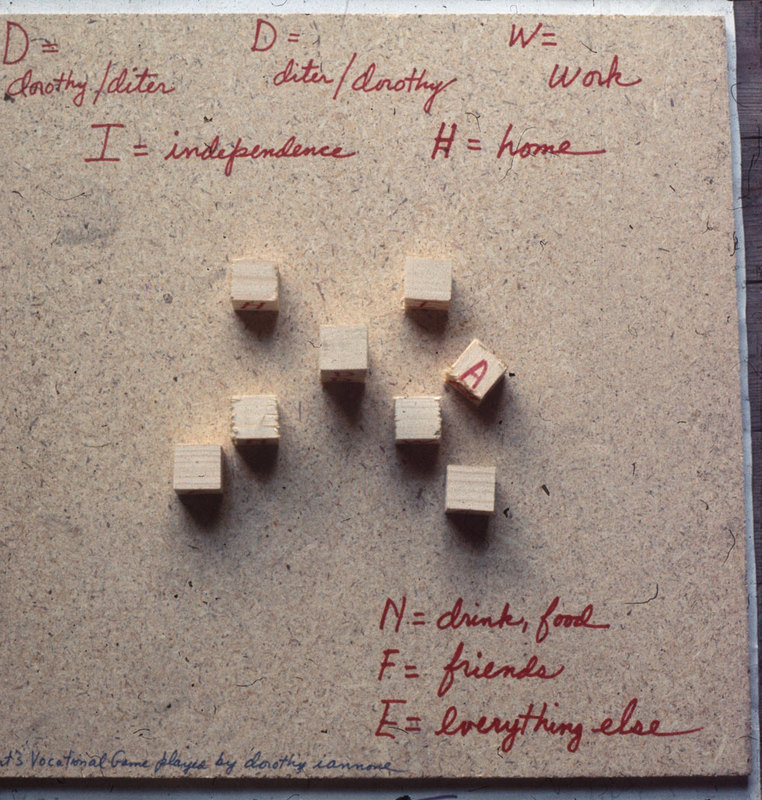 D= D= W=
dorothy/diter diter/dorothy work
I = independence H = home
H
A
N = drink, food
F = friends
E = everything else
Vocational Game played by dorothy iannone